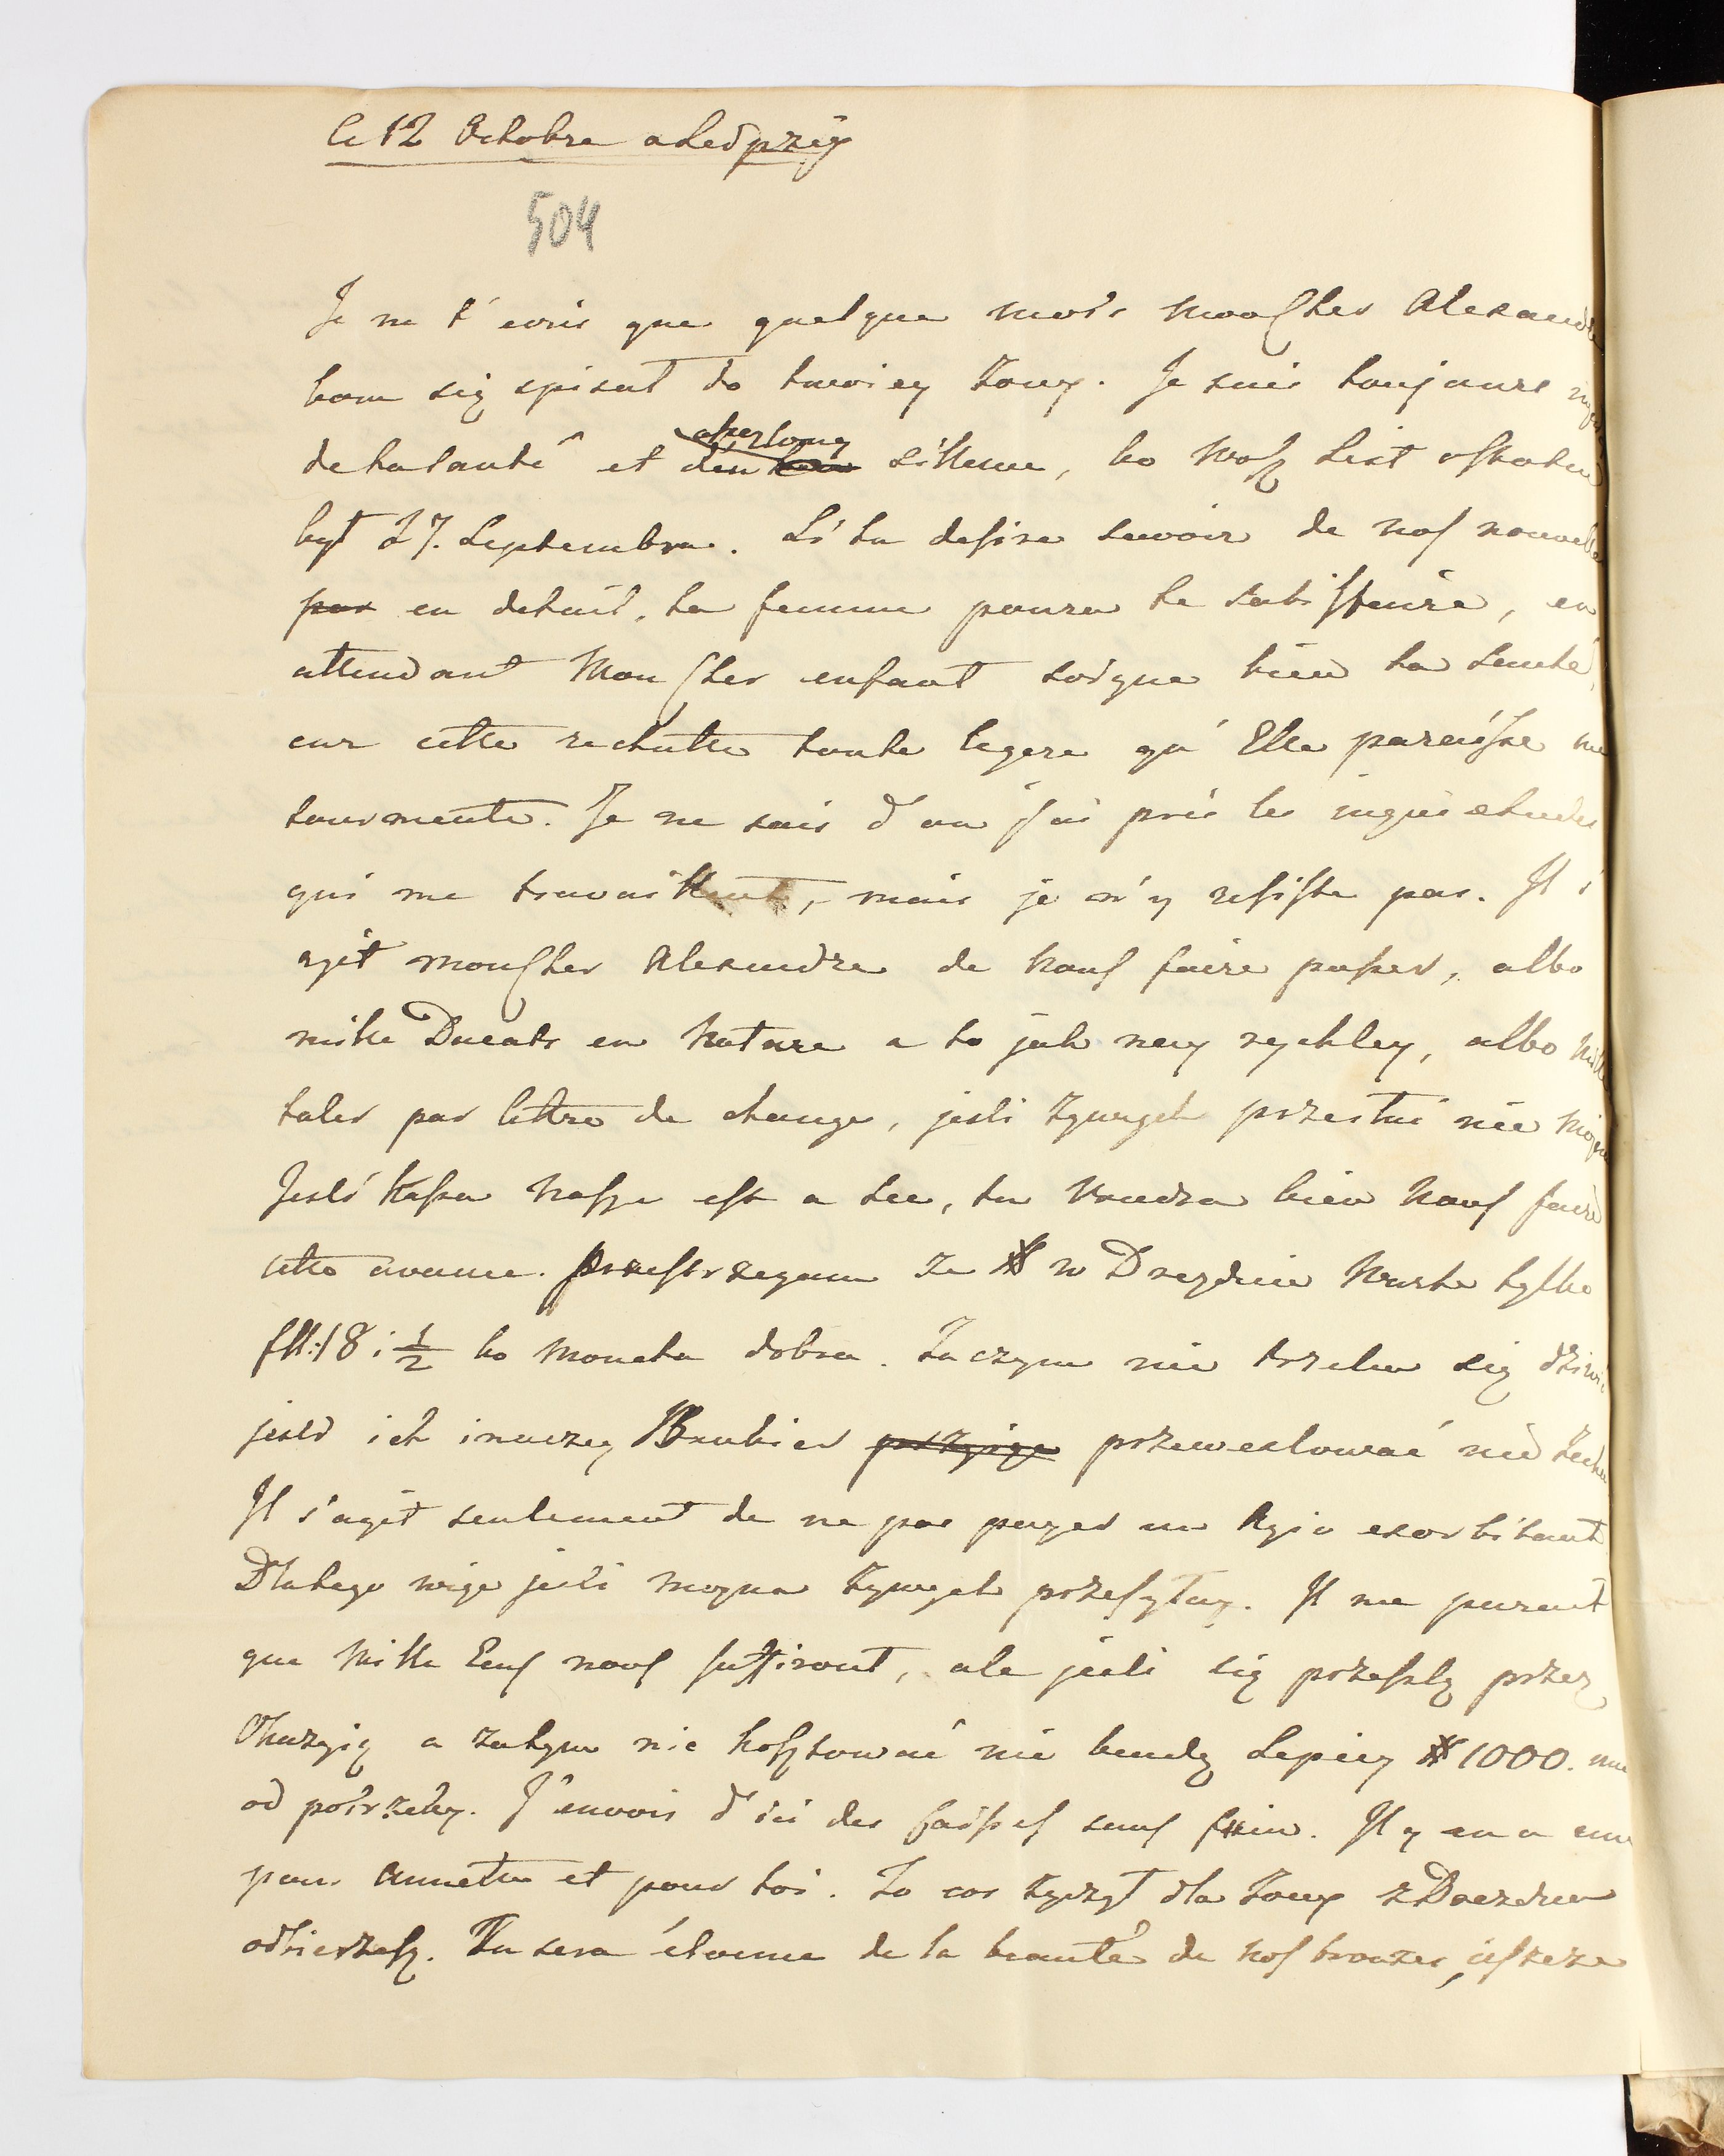 Ce 12 Octobre a Leipzig
504
Je ne t'ecris que quelque mots mon Cher Alexandre
bom się spisał do twoiey żony. Je suis toujours
de ta santé et d'un assez long silence, bo Wasz List ostatni
był 27. Septembre. Si tu desire savoir de nos nouvelles
par en detail, ta femme poura te satisfaire, en
attendant Mon Cher enfant soigne bien ta Santé,
car cette rechutte toute legere qu'Elle paraisse me
tourmente. Je ne sais d'ou j'ai pris les inquietudes
qui me travaillent, mais je n'y resiste pas. Il s'
agit mon Cher Alexandre de nous faire passer, albo
mille Ducats en Nature a to jak nay rychley, albo mille
taler par lettre de change, jesli żywych przesłać nie można
Jesli Kassa nasza est a sec, tu voudra bien nous faire
cette avance. Przestrzegam ze # w Dreznie warta tylko
fll: 18 i ½ bo moneta dobra. Zaczym nie trzeba się dziwić
jesli ich inaczey Bankier przewexlować nie zechce
Il s'agit seulement de ne pas payer un Agio exorbitant
Dlatego więc jesli mozna żywych przesyłay. Il me parait
que Mille Ecus nous suffiront, ale jesli się przeszlą przez
Okazyią a zatym nic kosztować nie bendą Lepiey # 1000. nie
od potrzeby. J'envois d'ici des caisses sans fin. Il y en a une
pour Annette et pour toi. To cos życzył dla żony z Drezdna
odbierzesz. Tu sera étonné de la beauté de nos bronzes, jeszcze